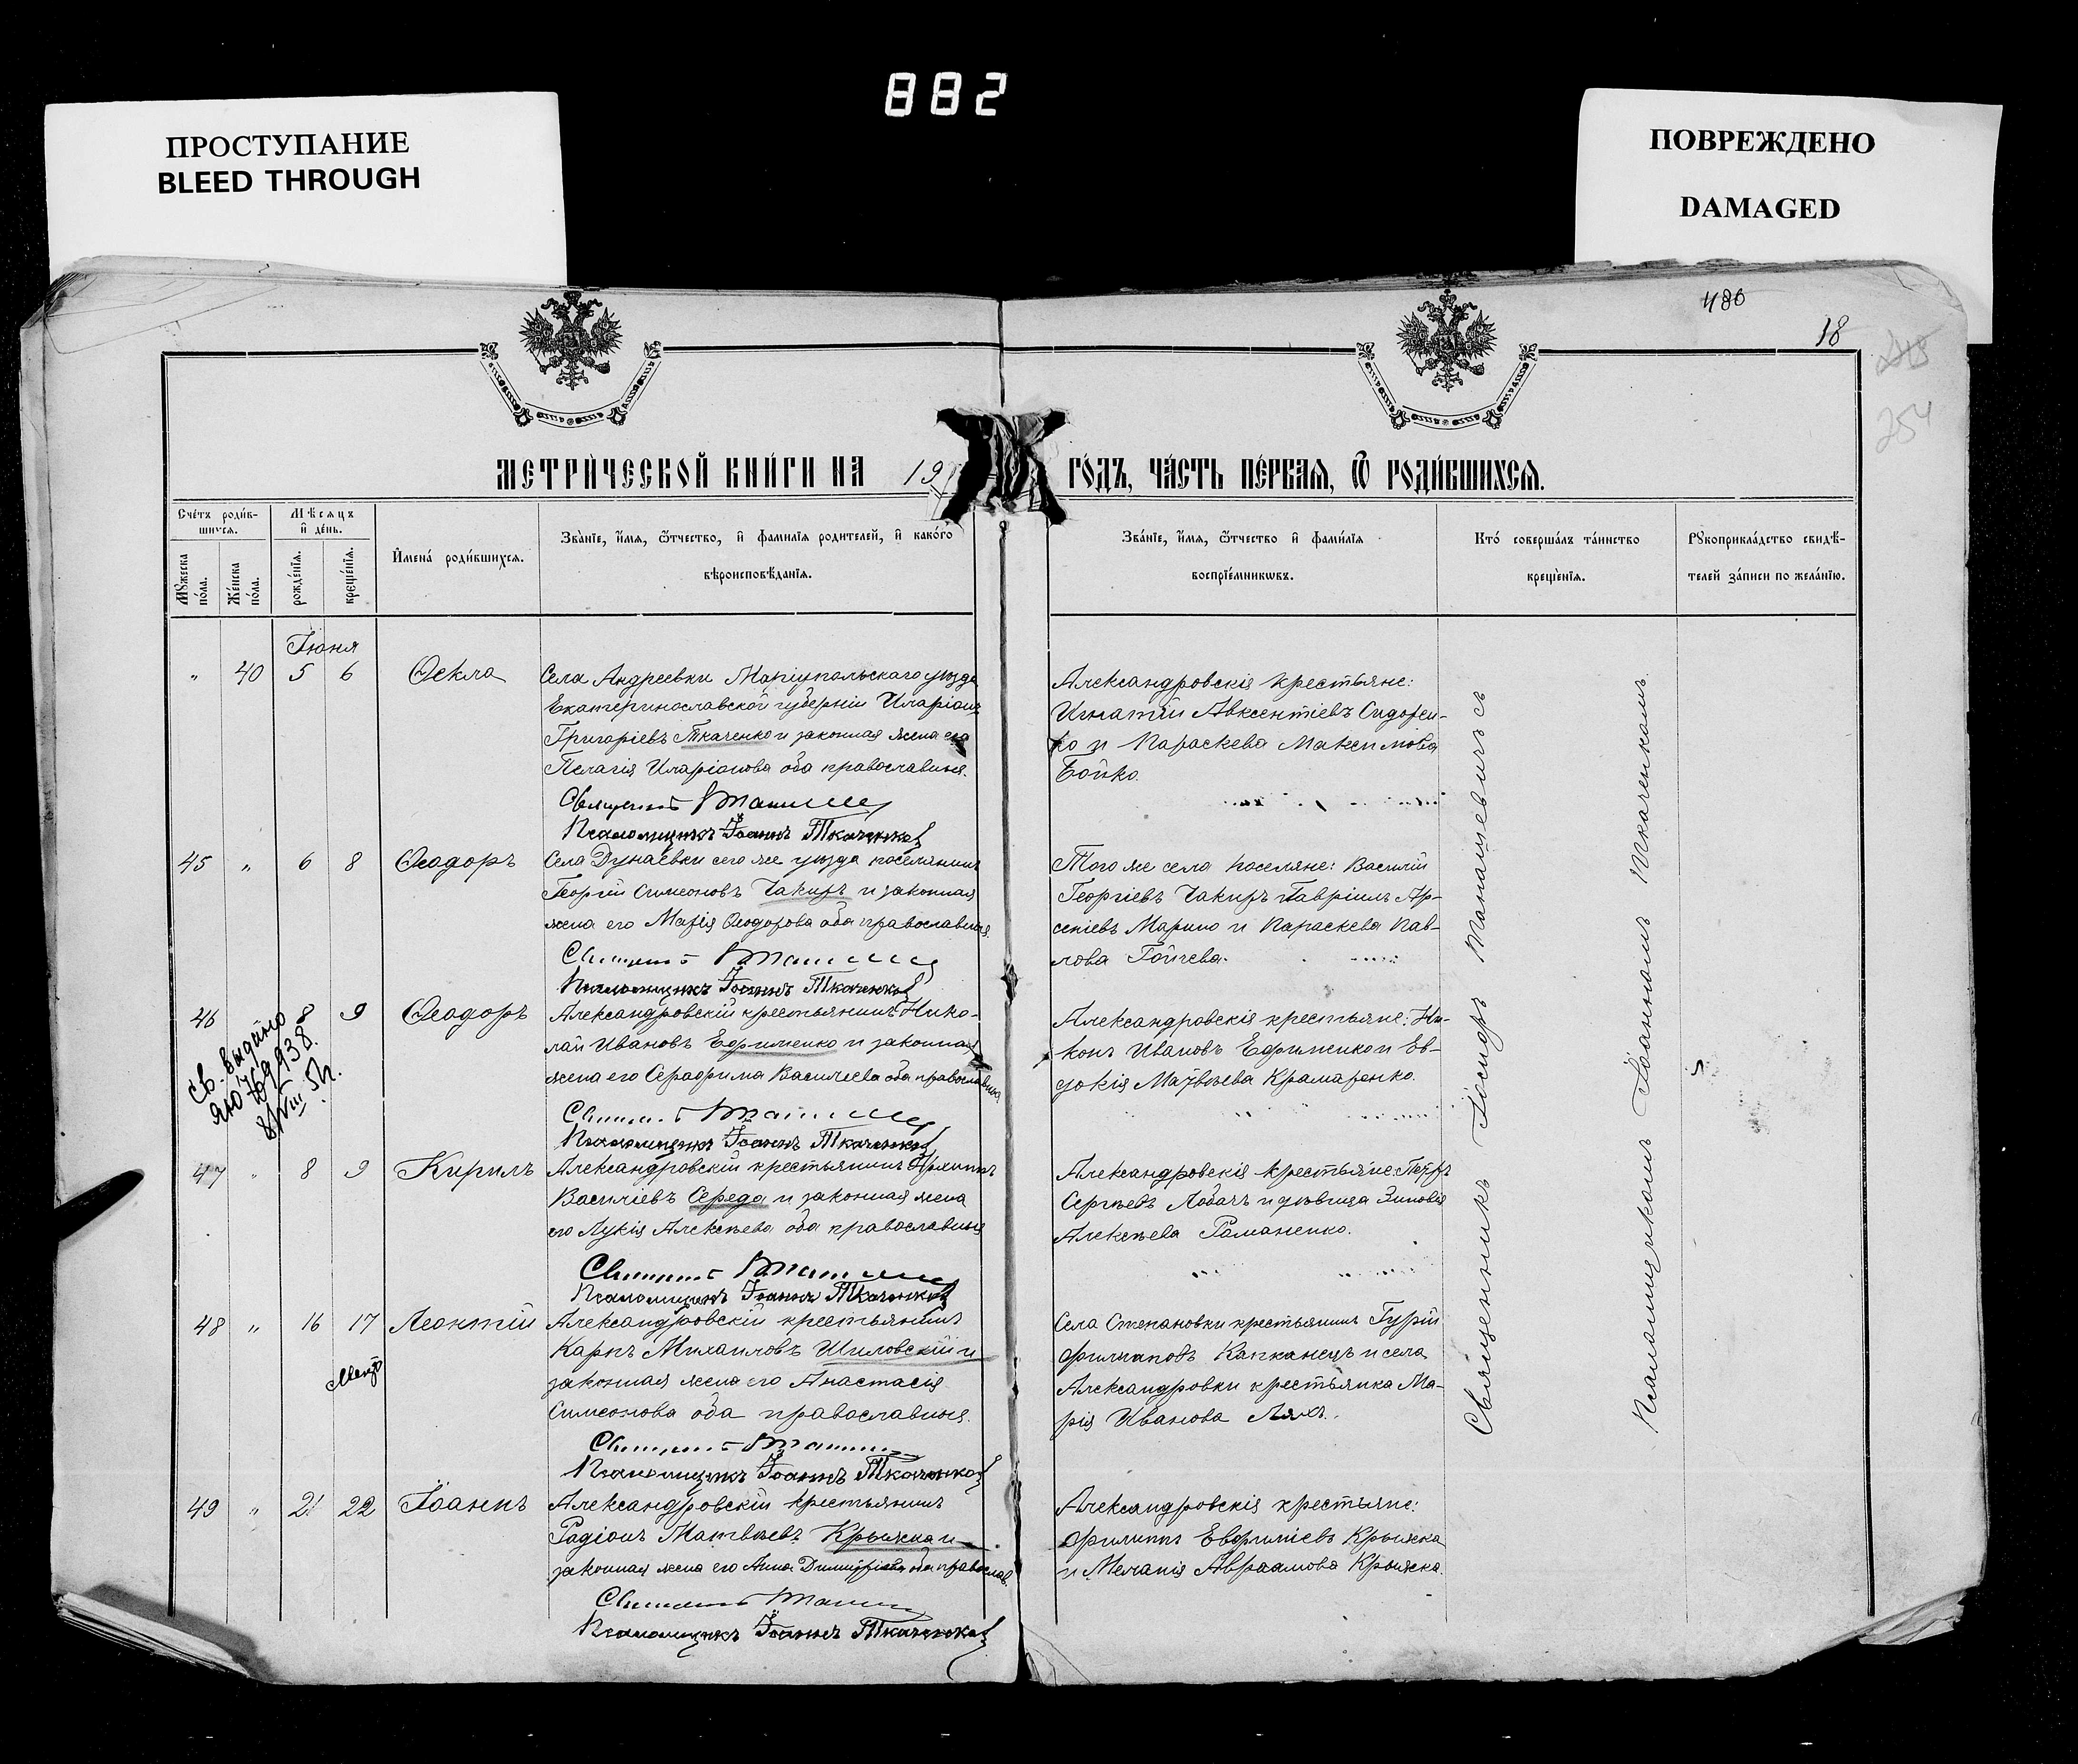 882
ПРОСТУПАНИЕ
BLEED THROUGH
ПОВРЕЖДЕНО
DAMAGED
480
18
254
МЕТРИ́ЧЕСКОЙ КНИ́ГИ НА 19
ГО́ДЪ, ЧА́СТЬ ПЕ́РВАѦ, Ѿ РОДИ́ВШИХСѦ.
Сче́тъ роди́в-
шихсѧ.
Мꙋжеска по́ла.
Же́нска по́ла.
Мѣ́сѧцъ
и҆ де́нь.
рожде́нїѧ.
креще́нїѧ.
И҆мена̀ роди́вшихсѧ.
Зва́нїе, и҆́мѧ, ѻ҆́тчество, и҆ фами́лїѧ роди́телей, и҆ како́гѡ
вѣроисповѣ́данїѧ.
Зва́нїе, и҆́мѧ, ѻ҆́тчество и҆ фами́лїѧ
воспрїе́мникѡвъ.
Кто́ соверша́лъ та́инство
креще́нїѧ.
Рꙋкоприкла́дство свидѣ́-
телей за́писи по жела́нїю.
Іюня
" 40 5 6 Ѳекла
Села Андреевки Маріупольскаго уѣзда
Екатеринославской губерніи Иларіонъ
Григоріевъ Ткаченко и законная жена его
Пелагія Иларіонова оба православные.
Священникъ
Псаломщикъ Іоаннъ Ткаченко
Александровскія крестьяне:
Игнатій Авксентіевъ Сидорен-
ко и Параскева Максимова
Бойко.
45 " 6 8 Ѳеодоръ
Села Дунаевки сего же уѣзда поселянинъ
Георгій Симеоновъ Чакиръ и законная
жена его Марія Ѳеодорова оба православные.
Священникъ
Псаломщикъ Іоаннъ Ткаченко
Того же села поселяне: Василій
Георгіевъ Чакиръ Гавріилъ Ар-
сеніевъ Марино и Параскева Пав-
лова Гойчева.
46 8 9 Ѳеодоръ
Св. выдано
ЯЮ 769938.
8/VIII 51г.
Александровскій крестьянинъ Нико-
лай Ивановъ Ефрименко и законная
жена его Серафима Василіева оба православные
Священникъ
Псаломщикъ Іоаннъ Ткаченко
Александровскія крестьяне: Ни-
конъ Ивановъ Ефрименко и Ев-
докія Матвѣева Крамаренко.
47 " 8 9 Кирилъ
Александровскій крестьянинъ Архипъ
Василіевъ Середа и законная жена
его Лукія Алексѣева оба православные
Священникъ
Псаломщикъ Іоаннъ Ткаченко
Александровскія крестьяне: Петръ
Сергѣевъ Лобачъ и дѣвица Зиновія
Алексѣева Романенко.
48 " 16 17 Леонтій
Александровскій крестьянинъ
Карпъ Михаиловъ Шиловскій и
законная жена его Анастасія
Симеонова оба православные.
Священникъ
Псаломщикъ Іоаннъ Ткаченко
Села Степановки крестьянинъ Гурій
Филиповъ Капканецъ и села
Александровки крестьянка Ма-
рія Иванова Ляхъ.
49 " 21 22 Іоаннъ
Александровскій крестьянинъ
Радіонъ Матвѣевъ Крыжка и
законная жена его Анна Димитріева оба православ.
Священникъ
Псаломщикъ Іоаннъ Ткаченко
Александровскія крестьяне:
Филиппъ Евфиміевъ Крыжка
и Меланія Авраамова Крыжка.
Священникъ Іосифъ Танашевичъ съ
Псаломщикомъ Іоанномъ Ткаченкомъ